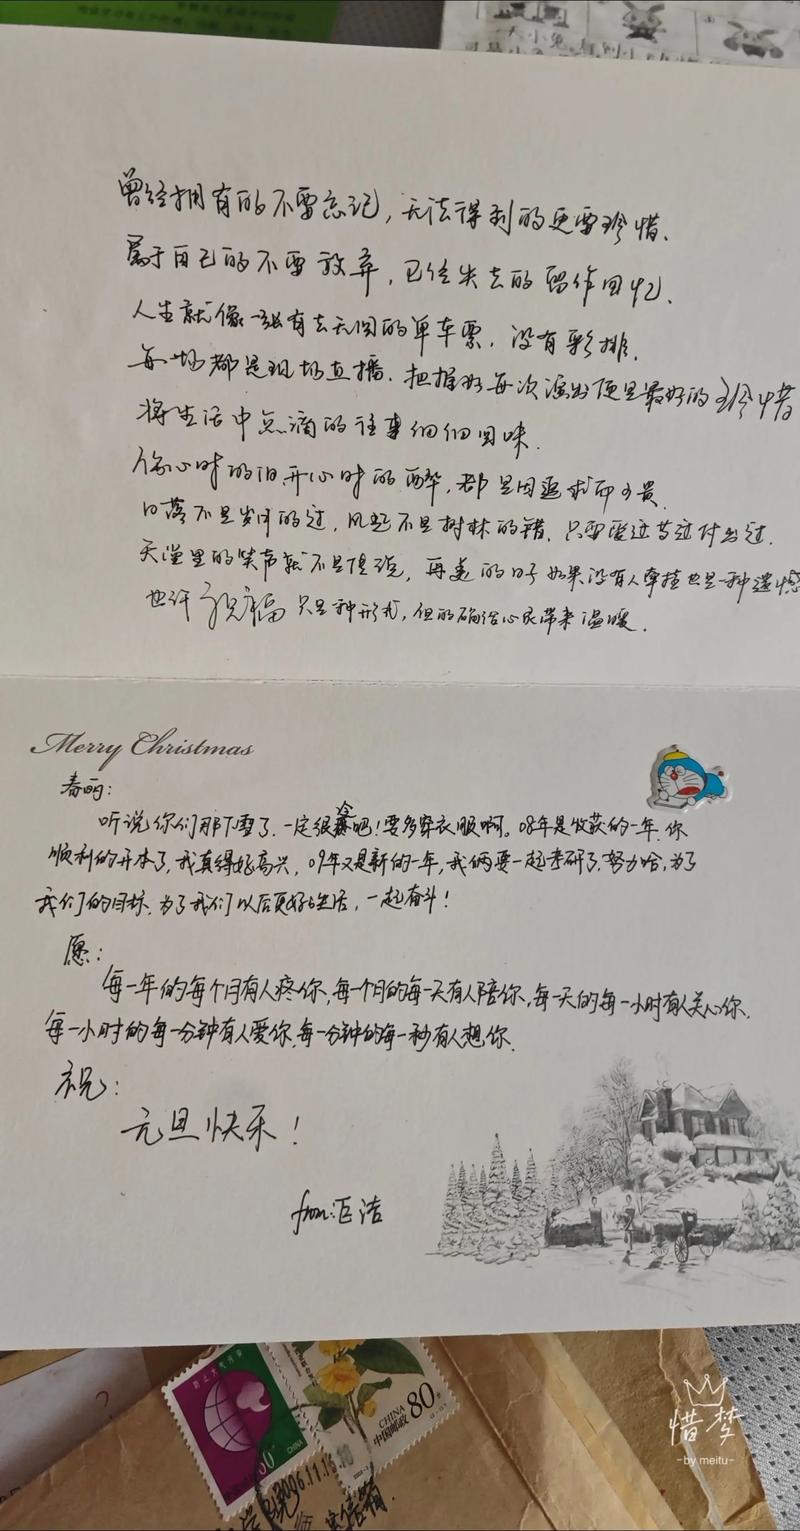 曾经拥有的不要忘记,无法得到的更要珍惜.
属于自己的不要放弃,已经失去的留作回忆.
人生就像一张有去无回的单车票,没有彩排.
每一场都是现场直播.把握好每次演出便是最好的珍惜
将生活中点滴的往事细细回味.
伤心时的泪,开心时的醉,都是因追求而可贵.
日落不是岁月的过,风起不是树林的错.只要爱过等过付出过.
天堂里的笑声就不是传说,再美的日子如果没有人牵挂也是一种遗憾
也许祝福只是种形式,但的确给心灵带来温暖.
Merry Christmas
春丽:
听说你们那下雪了.一定很冷吧!要多穿衣服啊。08年是收获的一年.你
顺利的升本了,我真得好高兴,09年又是新的一年,我俩要一起考研了.努力哈,为了
我们的目标.为了我们以后更好的生活,一起奋斗!
愿:
每一年的每个月有人疼你,每一个月的每一天有人陪你,每一天的每一小时有人关心你.
每一小时的每一分钟有人爱你.每一分钟的每一秒有人想你.
祝:
元旦快乐!
from:巨洁
CHINA
中国邮政
80
CHINA
惜梦
-by meitu-